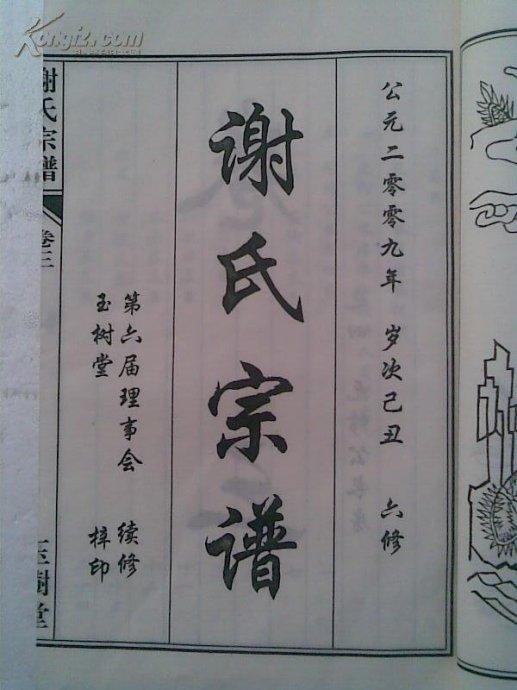 公元二零零九年 岁次己丑 六修
谢氏宗谱
第六届理事会 续修
玉树堂 梓印
謝氏宗譜
卷三
玉樹堂
Kongfz.com